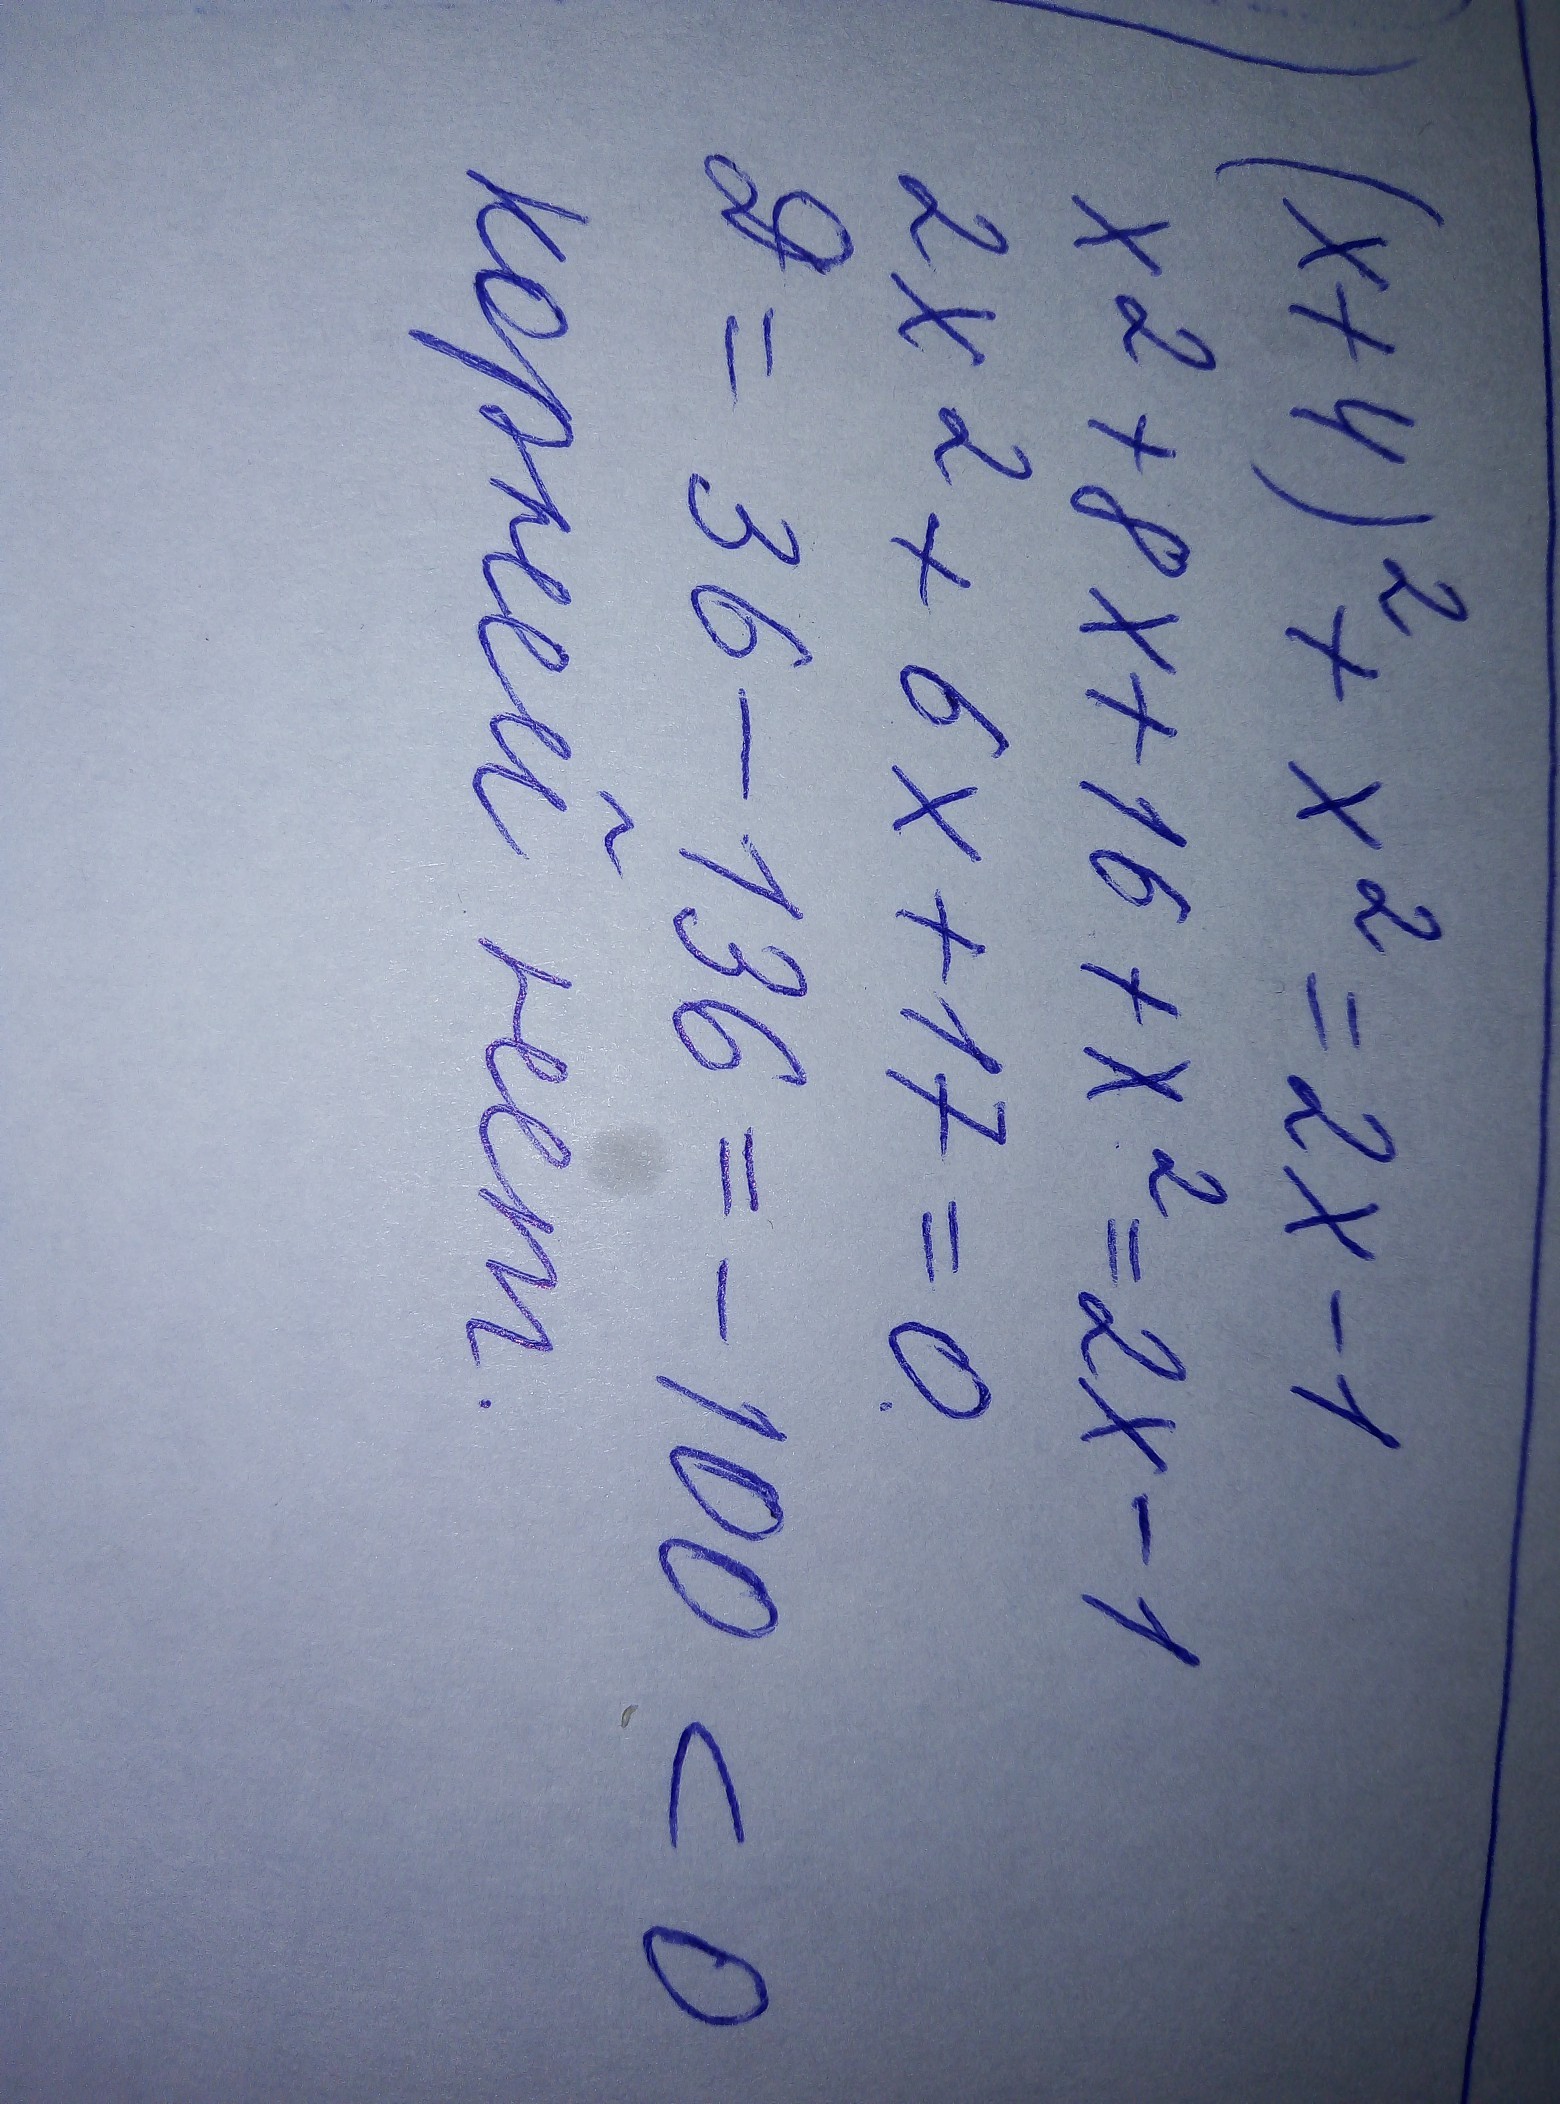 (x+4)²+x²=2x-1
x2+8x+16+x²=2x-1
2x2+6x+17=0
D=36-136=-100<0
корней нет.